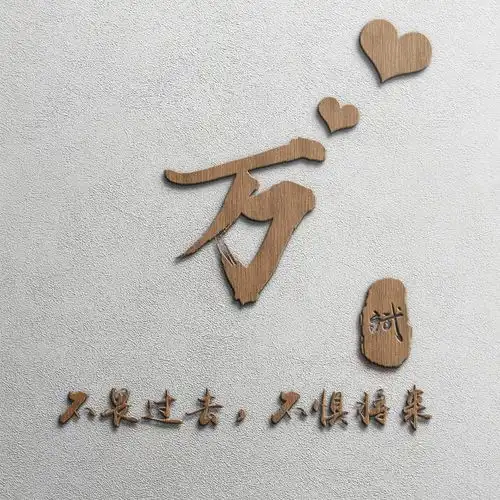 万
不畏过去，不惧将来